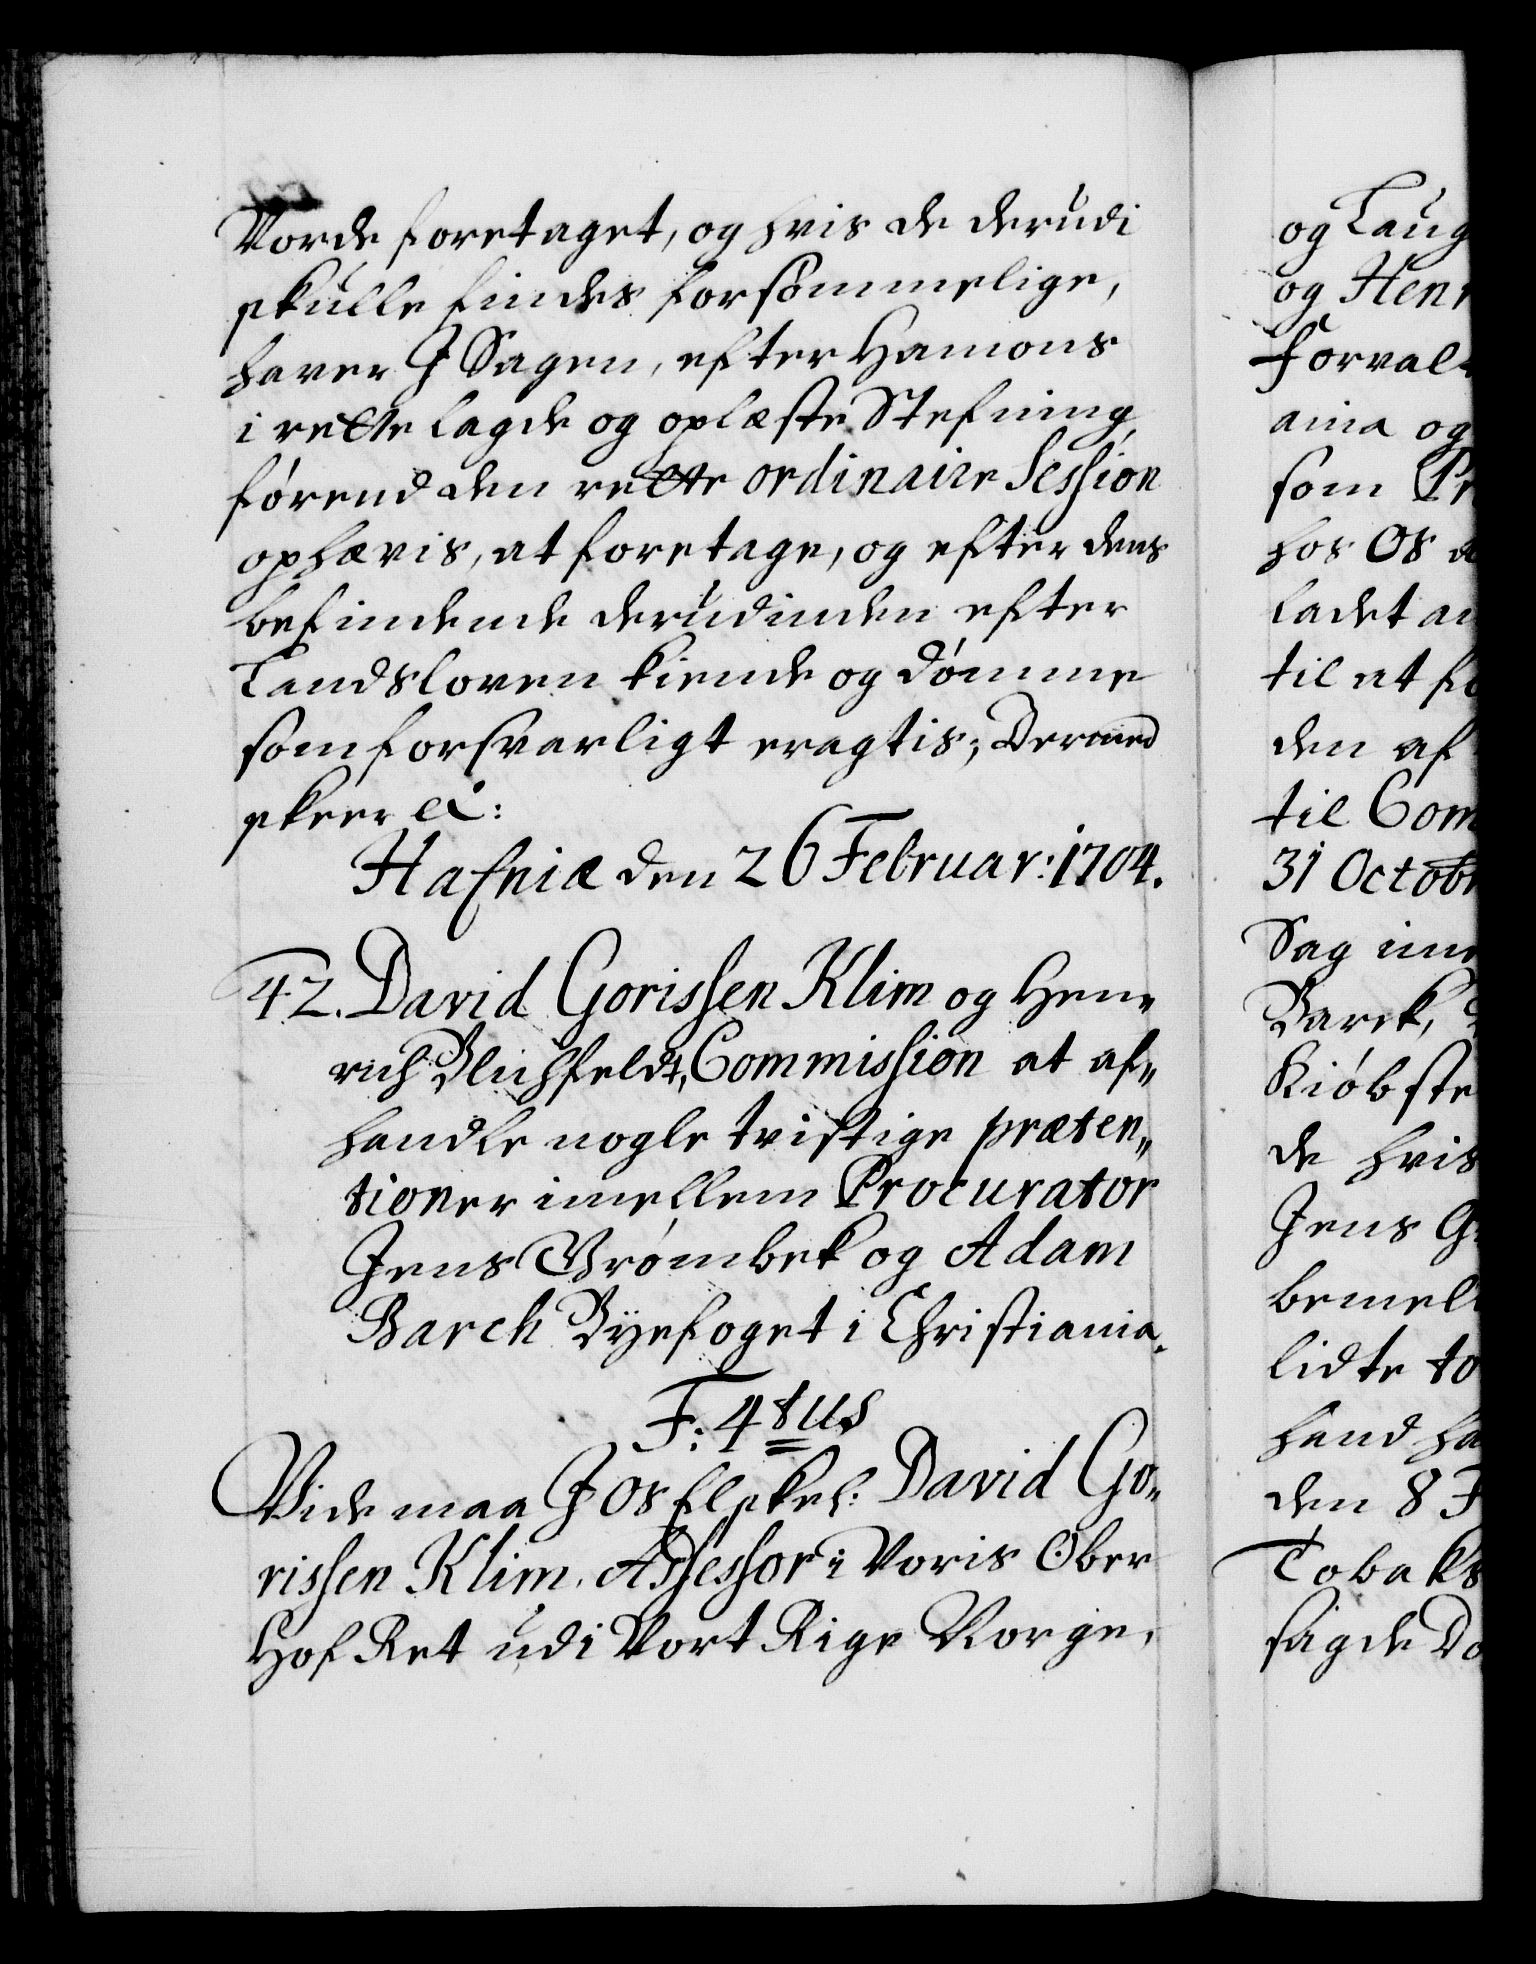 Vorde foretaget, og hvis de derudi
skulle findes forsømmelige,
haver I Sagen, efter Hamons
i rette lagde og oplæste Stefning
førend den rette ordinaire Session
ophævis, at foretage, og efter dens
befindende derudinden efter
Landsloven kiende og dømme
som forsvarligt eragtis; Dermed
skeer &:
Hafniæ den 26 Februar: 1704.
42. David Gorissen Klim og Hen„
rich Blichfeldt, Commission at af„
handle nogle tvistige præten„
tioner imellem Procurator
Jens Grømbek og Adam
Barch Byefoget i Christiania.
F: 4tus
Vide maa I Os Elskel: David Go„
rissen Klim, Assessor i Voris Ober
Hof Ret udi Vort Rige Norge,
og Laug
og Henr
Forval
ania og
som Pr
hos Os
ladet an
til at fo
den af
til Com
31 Octobr
Sag im
Barck,
Kiøbste
de hvis
Jens G
bemel
lidte to
hand ha
den 8 F
Tobaks
sagde Do